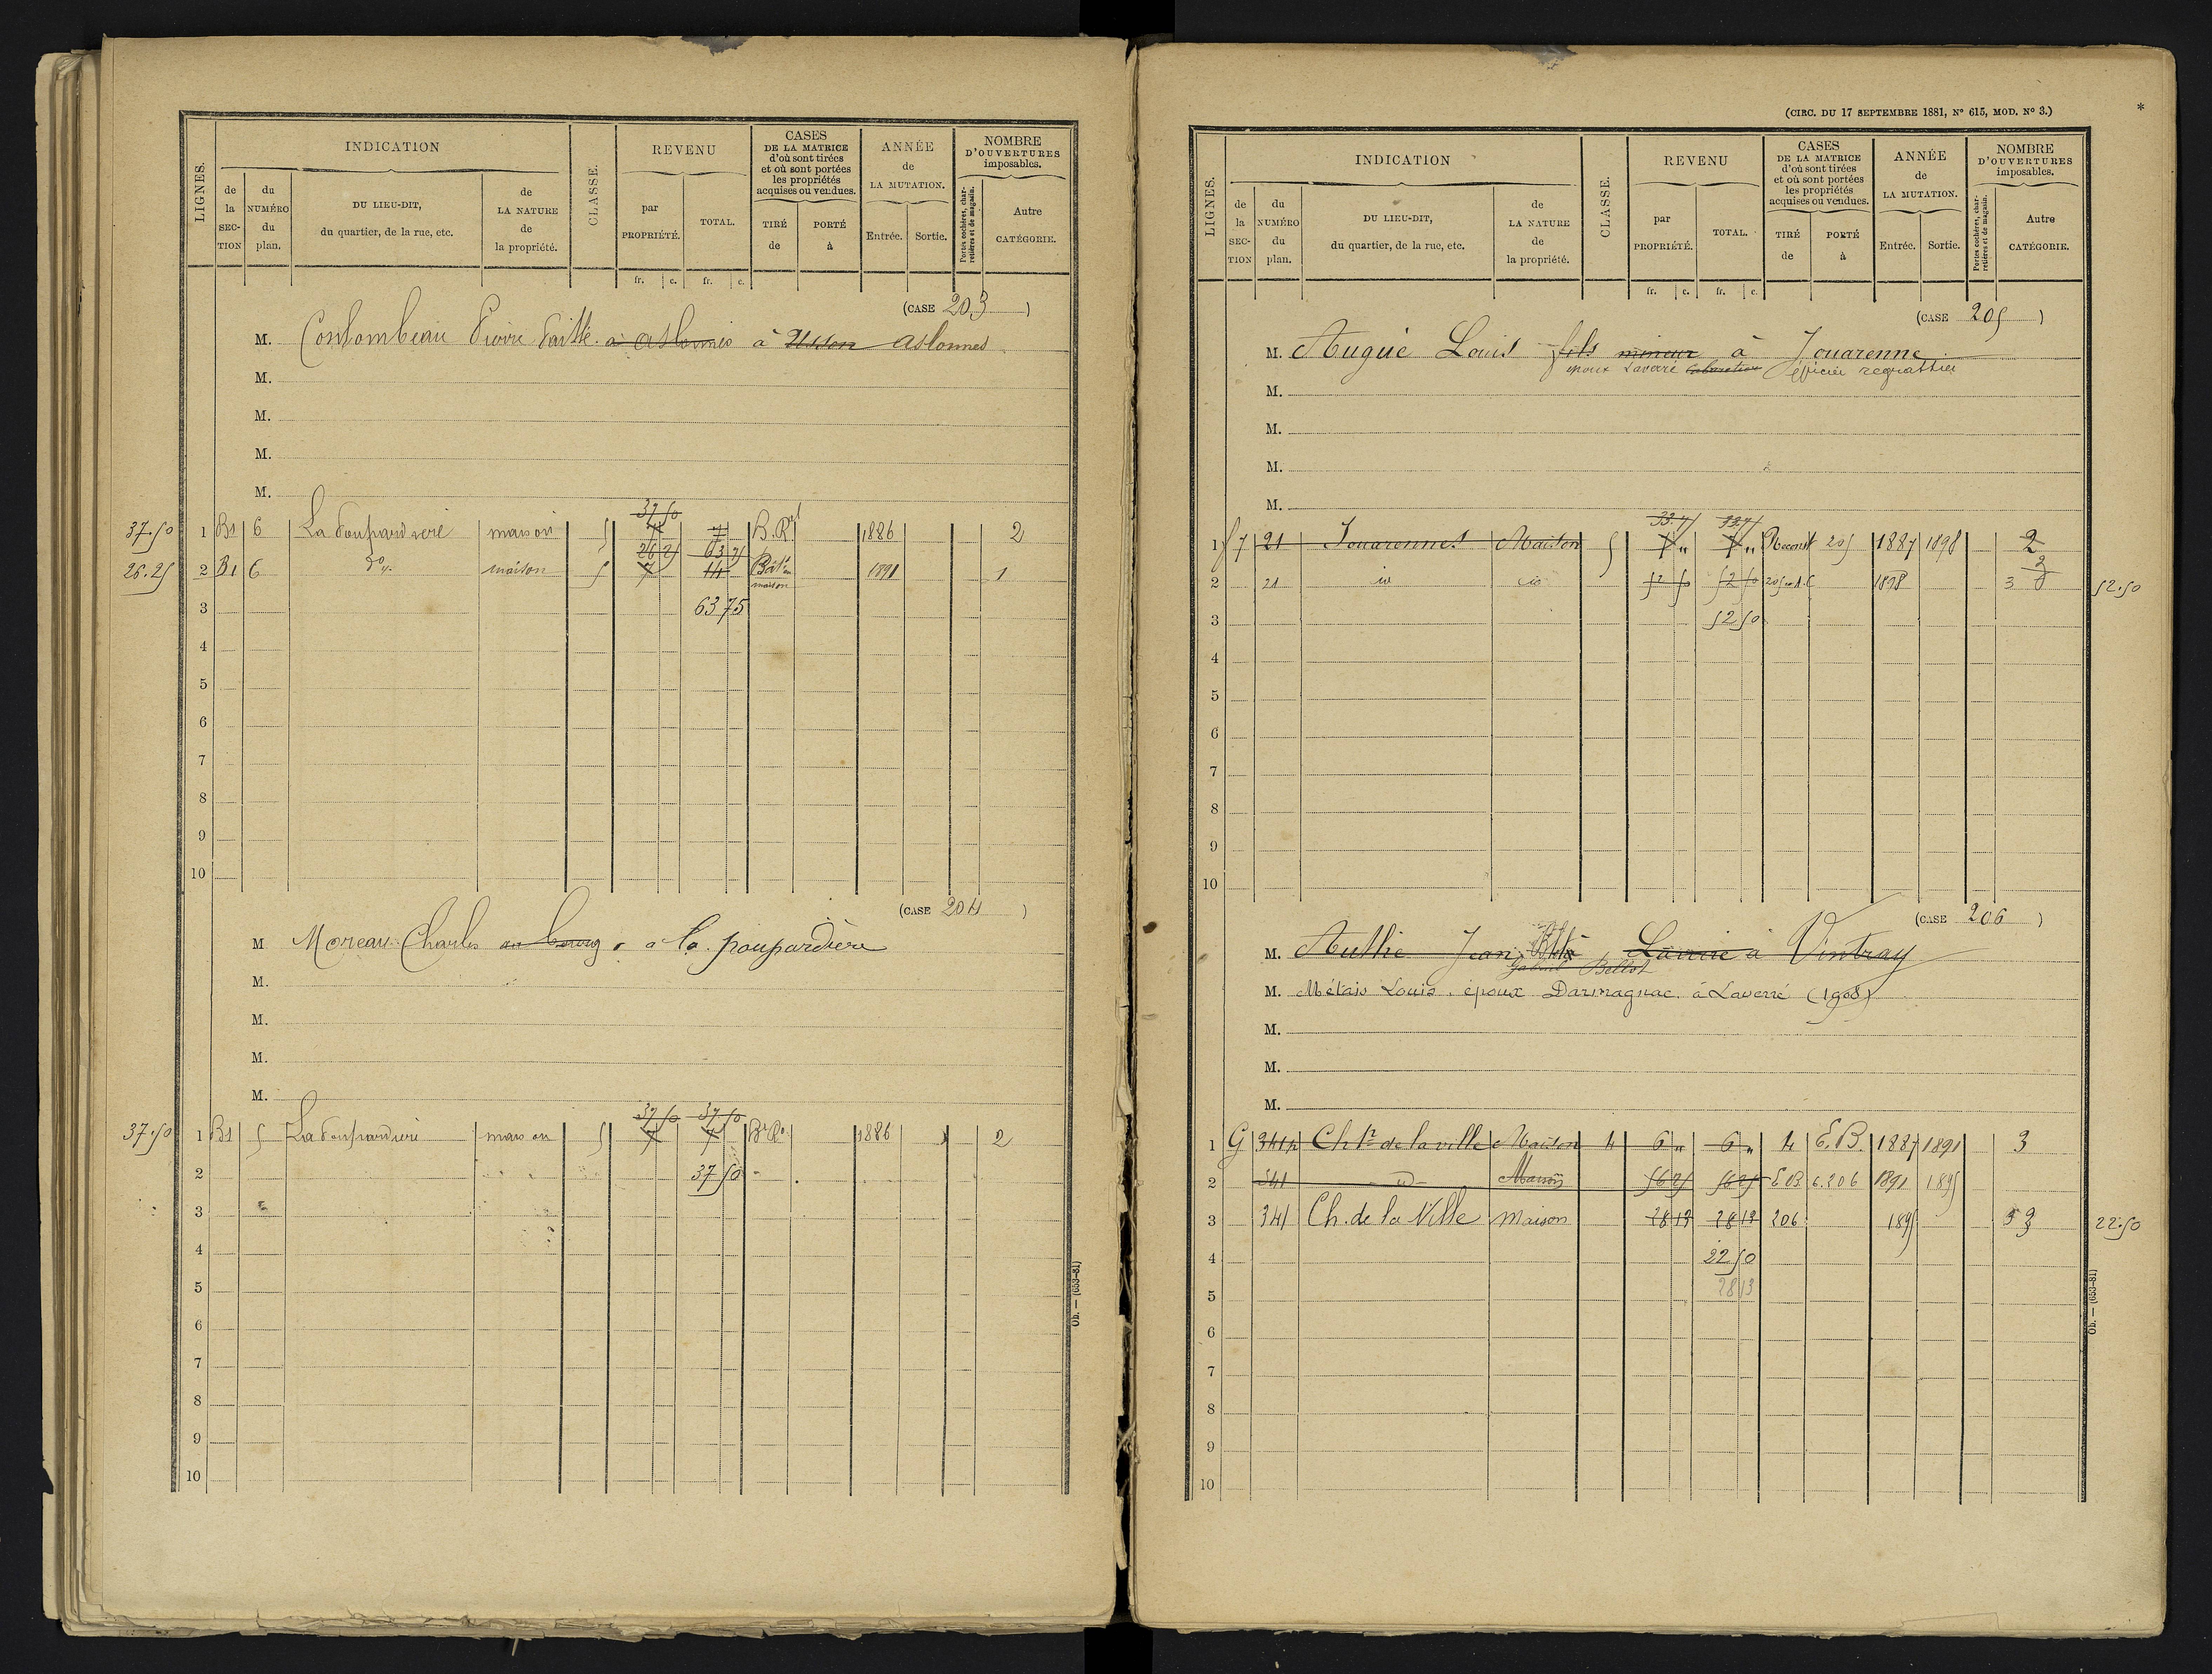 LIGNES.
INDICATION
de la SECTION
du NUMÉRO du plan.
DU LIEU-DIT, du quartier, de la rue, etc.
de LA NATURE de la propriété.
CLASSE.
REVENU
par PROPRIÉTÉ.
TOTAL.
CASES DE LA MATRICE d'où sont tirées et où sont portées les propriétés acquises ou vendues.
TIRÉ de
PORTÉ à
ANNÉE de LA MUTATION.
Entrée.
Sortie.
NOMBRE D'OUVERTURES imposables.
Portes cochères, charretières et de magasin.
Autre CATÉGORIE.
fr. c. fr. c.
(CASE 203)
M. Pierre à à Usson Aslonnes
M.
M.
M.
M.
37 50
37.50 1 B1 6 maison 5 7 7 1886 2
26 25 63 75
26.25 2 B1 6 do maison 5 7 14 Bât. maison 1891 1
3 63 75
4
5
6
7
8
9
10
(CASE 204)
M Moreau Charles au bourg à la poupardière
M.
M.
M.
M.
37 50 37 50
37.50 1 B1 5 maison 5 7 7 1886 2
2 37 50
3
4
5
6
7
8
9
10
Ob. — (653-81)
(CIRC. DU 17 SEPTEMBRE 1881, N° 615, MOD. N° 3.)
*
LIGNES.
INDICATION
de la SECTION
du NUMÉRO du plan.
DU LIEU-DIT, du quartier, de la rue, etc.
de LA NATURE de la propriété.
CLASSE.
REVENU
par PROPRIÉTÉ.
TOTAL.
CASES DE LA MATRICE d'où sont tirées et où sont portées les propriétés acquises ou vendues.
TIRÉ de
PORTÉ à
ANNÉE de LA MUTATION.
Entrée.
Sortie.
NOMBRE D'OUVERTURES imposables.
Portes cochères, charretières et de magasin.
Autre CATÉGORIE.
fr. c. fr. c.
(CASE 205)
M. Augué Louis fils mineur à Jouarenne
époux Laverré épicier regrattier
M.
M.
M.
M.
1 21 Jouarennes Maison 5 205 1887 1898 2
2 21 id id 52 50 52 50 1898 3 52.50
3 52 50
4
5
6
7
8
9
10
(CASE 206)
M. Jean à Vintray
Bellot
M. Métais Louis, époux Darmagnac à Laverré (1908)
M.
M.
M.
1 G 341 de la ville Maison 4 6 " 6 " 4 E.B. 1887 1891 3
2 341 id Maison 56 25 56 25 E B 206 1891 1895
3 341 Ch. de la Ville maison 28 13 28 13 206 1895 3 22.50
4 22 50
5 28 13
6
7
8
9
10
Ob. — (653-81)